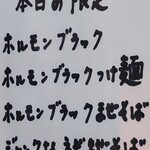 本日の限定
ホルモンブラック
ホルモンブラックつけ麺
ホルモンブラックまぜそば